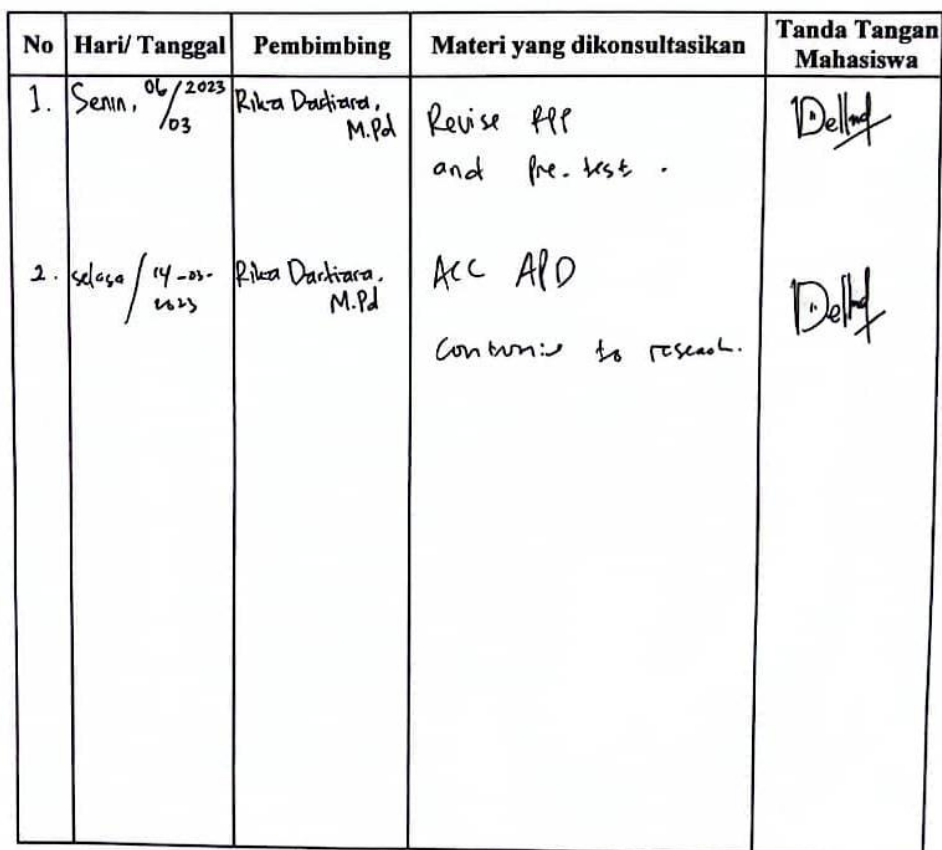 No Hari/ Tanggal Pembimbing Materi yang dikonsultasikan Tanda Tangan Mahasiswa
1. Senin, 06/03 2023 Rika Dartiara, M.Pd Revise RPP
and Pre-test.
2. selasa / 14-03-2023 Rika Dartiara, M.Pd ACC APD
Continue to research.